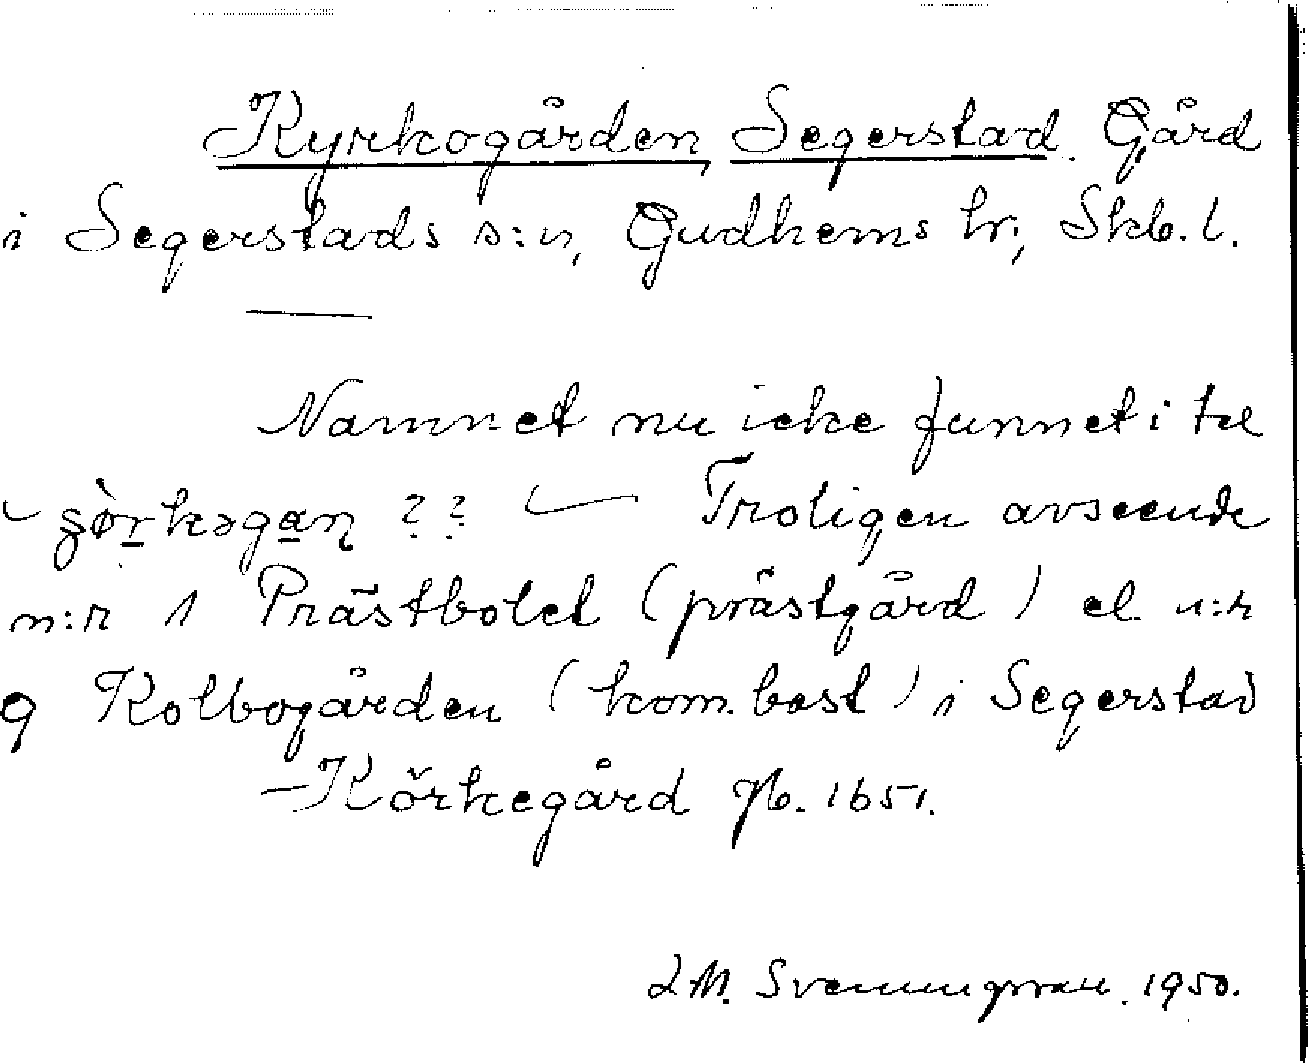 Kyrkogården, Segerstad. Gård
i Segerstads s:n, Gudhems hr, Skb. l.
Namnet nu icke funnet i
?? — Troligen avseende
n:r 1 Prästbolet (prästgård) el. n:r
9 Kolbogården (kom. bost) i Segerstad
— Körkegård jb. 1651.
M. Svenungsson. 1950.